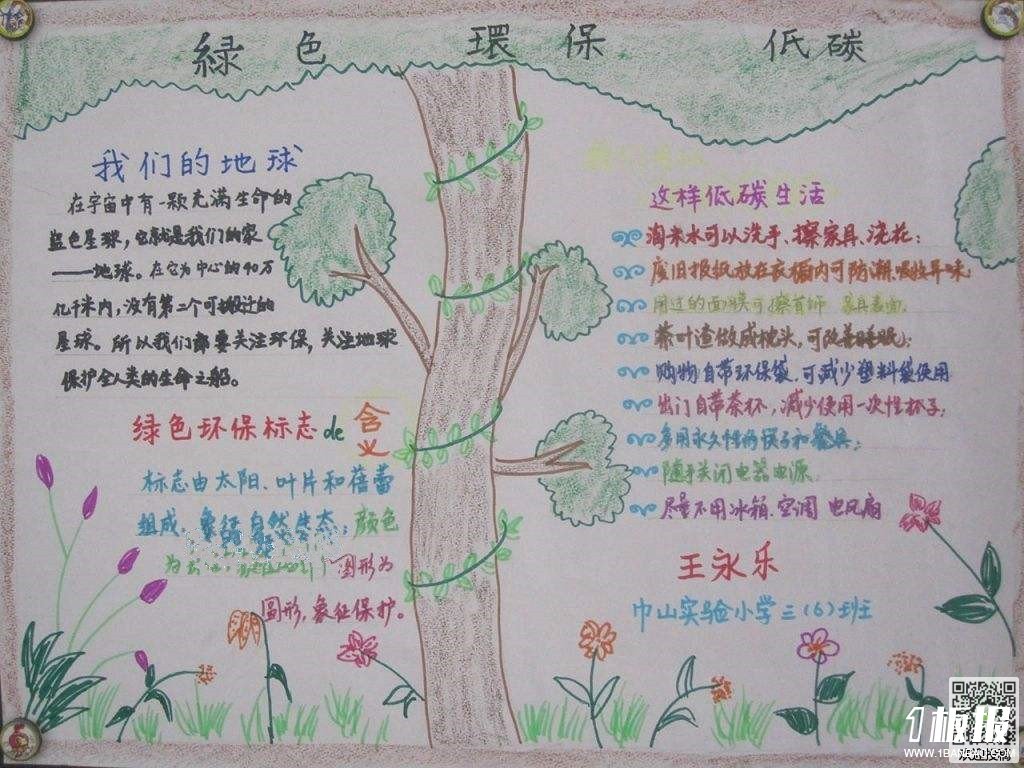 綠色 環保 低碳
我们的地球
在宇宙中有一颗充满生命的
蓝色星球，它就是我们的家
——地球。在它为中心的40万
亿千米内，没有第二个可搬迁的
星球。所以我们都要关注环保，关注地球
保护全人类的生命之船。
绿色环保标志de含义
标志由太阳、叶片和蓓蕾
组成，象征自然生态；颜色
为 圆形为
圆形，象征保护。
这样低碳生活
淘米水可以洗手、擦家具、浇花；
废旧报纸放在衣橱内可防潮、吸拉异味；
用过的面膜可擦首饰 家具表面；
茶叶渣做成枕头，可改善睡眠；
购物自带环保袋、可减少塑料袋使用
出门自带茶杯，减少使用一次性杯子；
多用永久性的筷子和餐具；
随手关闭电器电源
尽量不用冰箱、空调 电风扇
王永乐
巾山实验小学三（6）班
1板报
WWW.1BANBAO.COM
欢迎投稿